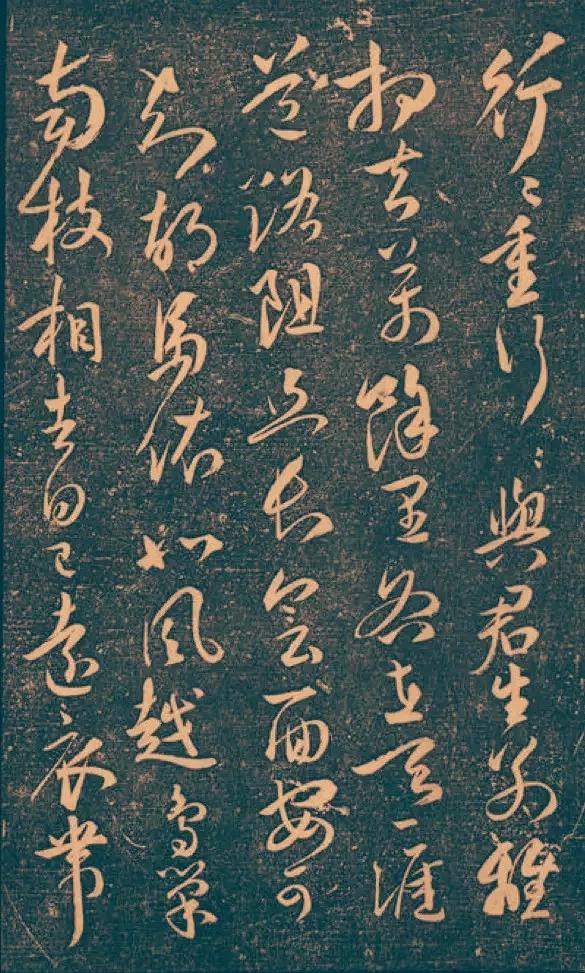 行〻重行〻與君生別離
相去萬餘里各在天一涯
道路阻且長會面安可
知胡馬依北風越鳥巢
南枝相去日已遠衣帶